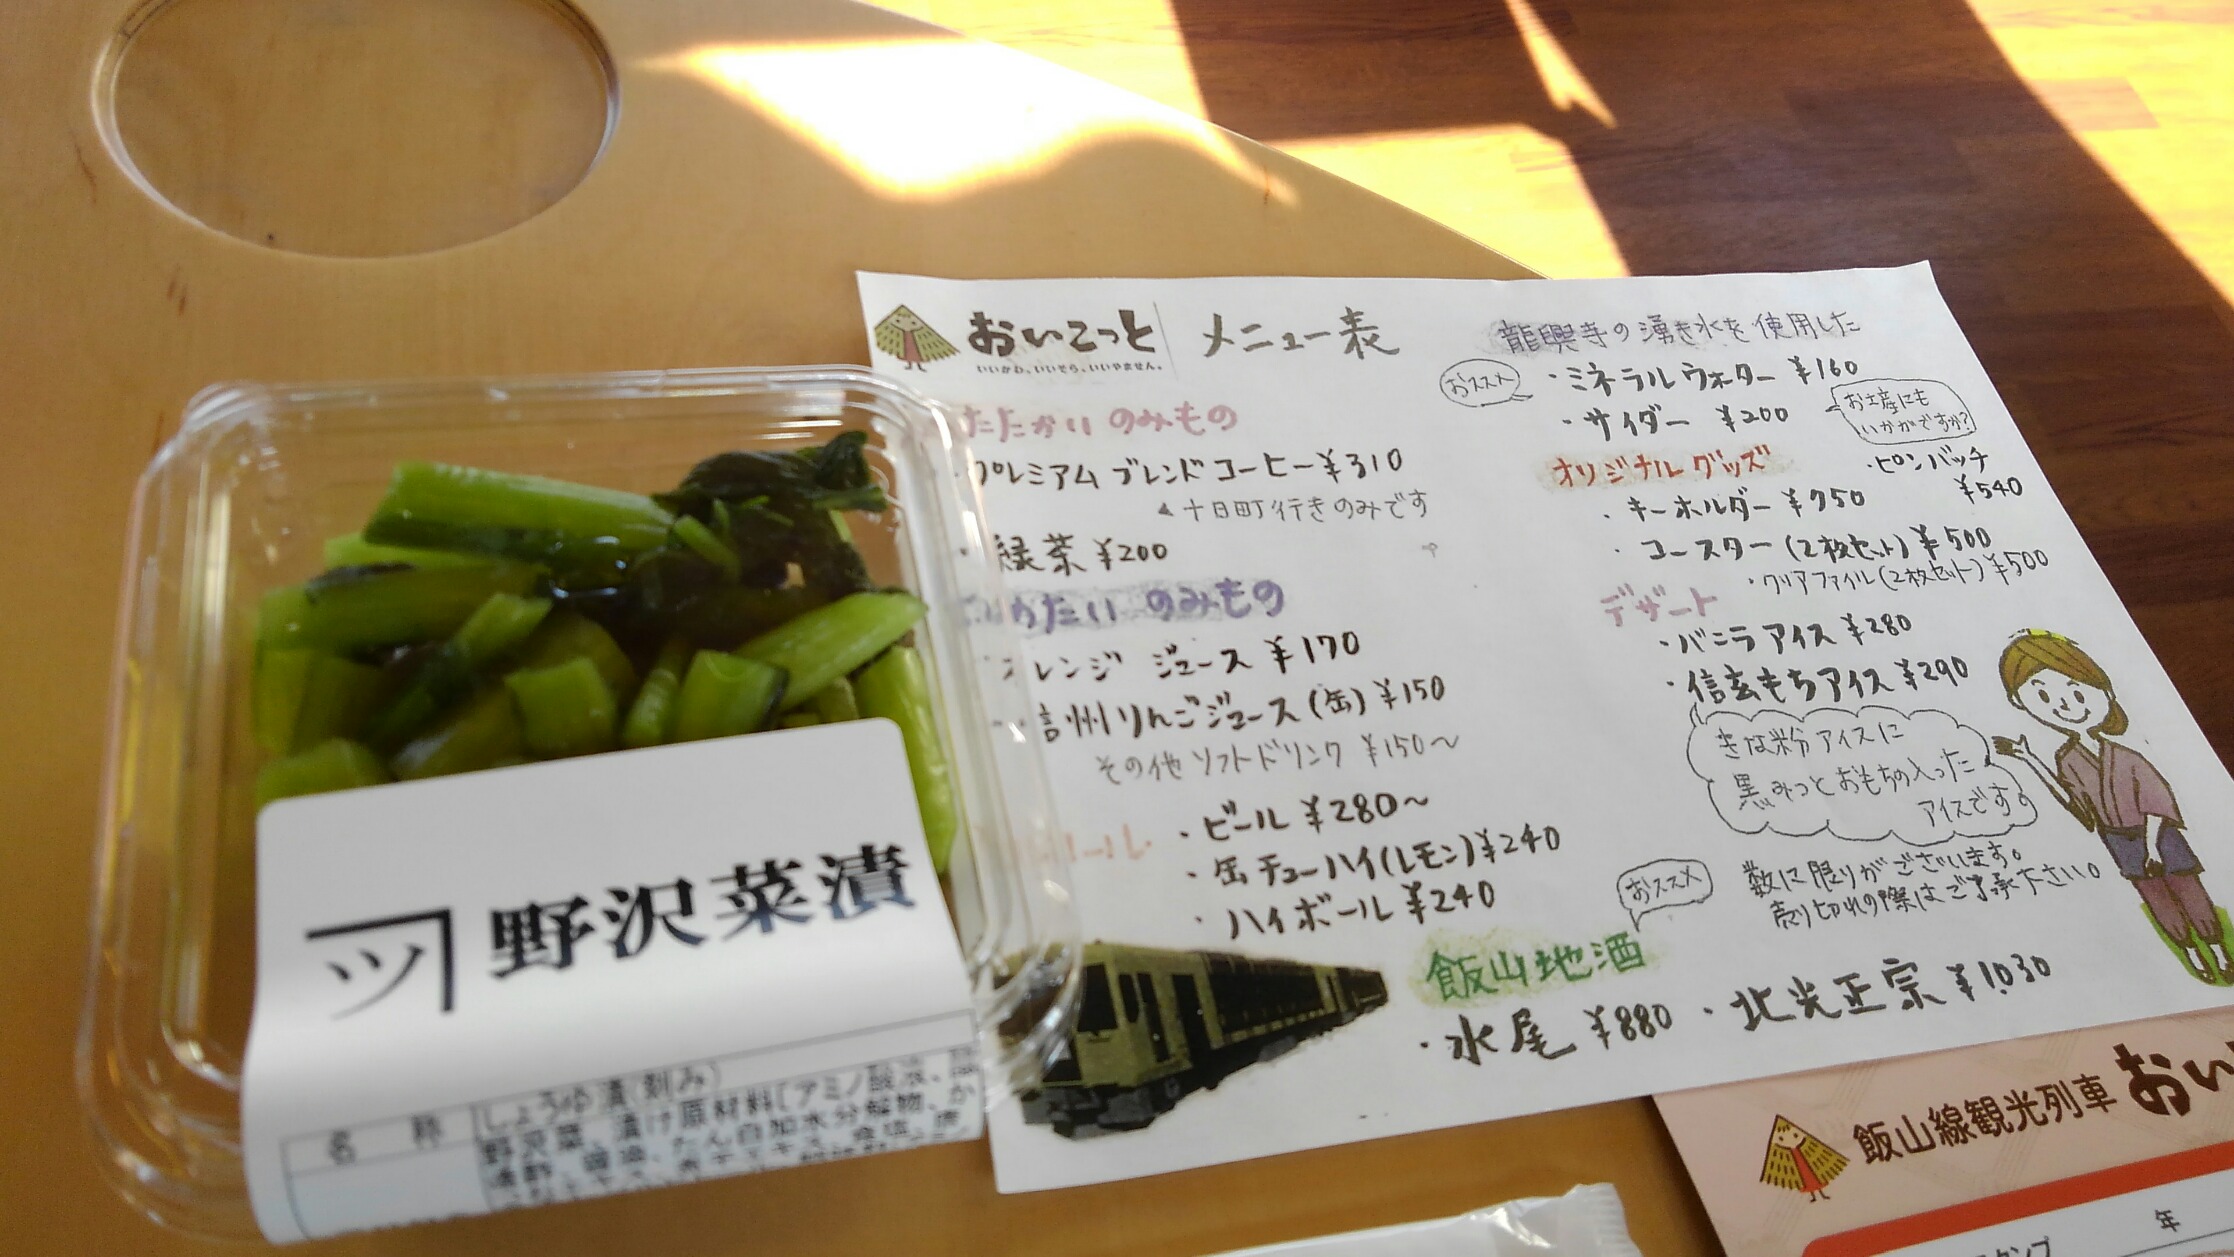 おいこっと
いいかわ、いいそら、いいやません。
メニュー表
たたかい のみもの
プレミアム ブレンドコーヒー ¥310
▲十日町行きのみです
・緑茶 ¥200
たい のみもの
レンジ ジュース ¥170
信州りんごジュース(缶) ¥150
その他 ソフトドリンク ¥150〜
・ビール ¥280〜
・缶チューハイ(レモン) ¥240
・ハイボール ¥240
龍興寺の湧き水を使用した
おススメ
・ミネラルウォーター ¥160
・サイダー ¥200
お土産にも
いかがですか?
オリジナルグッズ
・ピンバッチ
¥540
・キーホルダー ¥750
・コースター(2枚セット) ¥500
・クリアファイル(2枚セット) ¥500
デザート
・バニラアイス ¥280
・信玄もちアイス ¥290
きな粉アイスに
黒みつとおもちの入った
アイスです。
数に限りがございます。
売り切れの際はご了承下さい。
おススメ
飯山地酒
・水尾 ¥880 ・北光正宗 ¥1,030
野沢菜漬
名 称
しょうゆ漬(刻み)
野沢菜、漬け原材料[アミノ酸液、
醤油、たん白加水分解物、
飯山線観光列車
おい
年